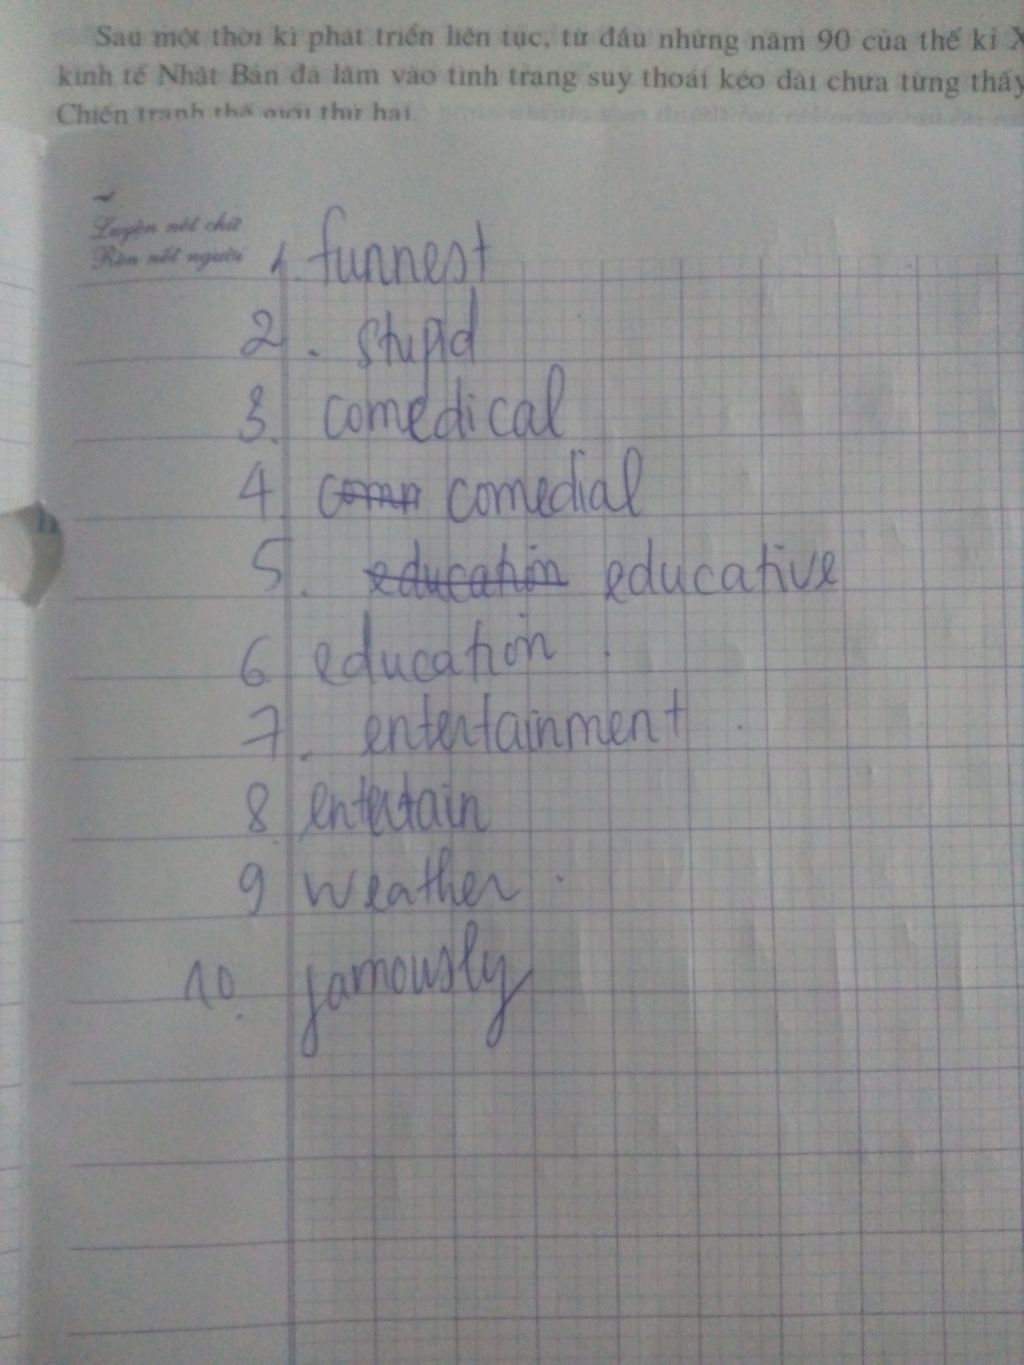 Sau một thời kì phát triển liên tục, từ đầu những năm 90 của thế kỉ X
kinh tế Nhật Bản đã lâm vào tình trạng suy thoái kéo dài chưa từng thấy
Chiến tranh thế giới thứ hai.
Luyện nét chữ
Rèn nết người
1. funnest
2. stupid
3. comedical
4 comn comedial
5. education educative
6 education
7. entertainment
8 entertain
9 weather
10. famously